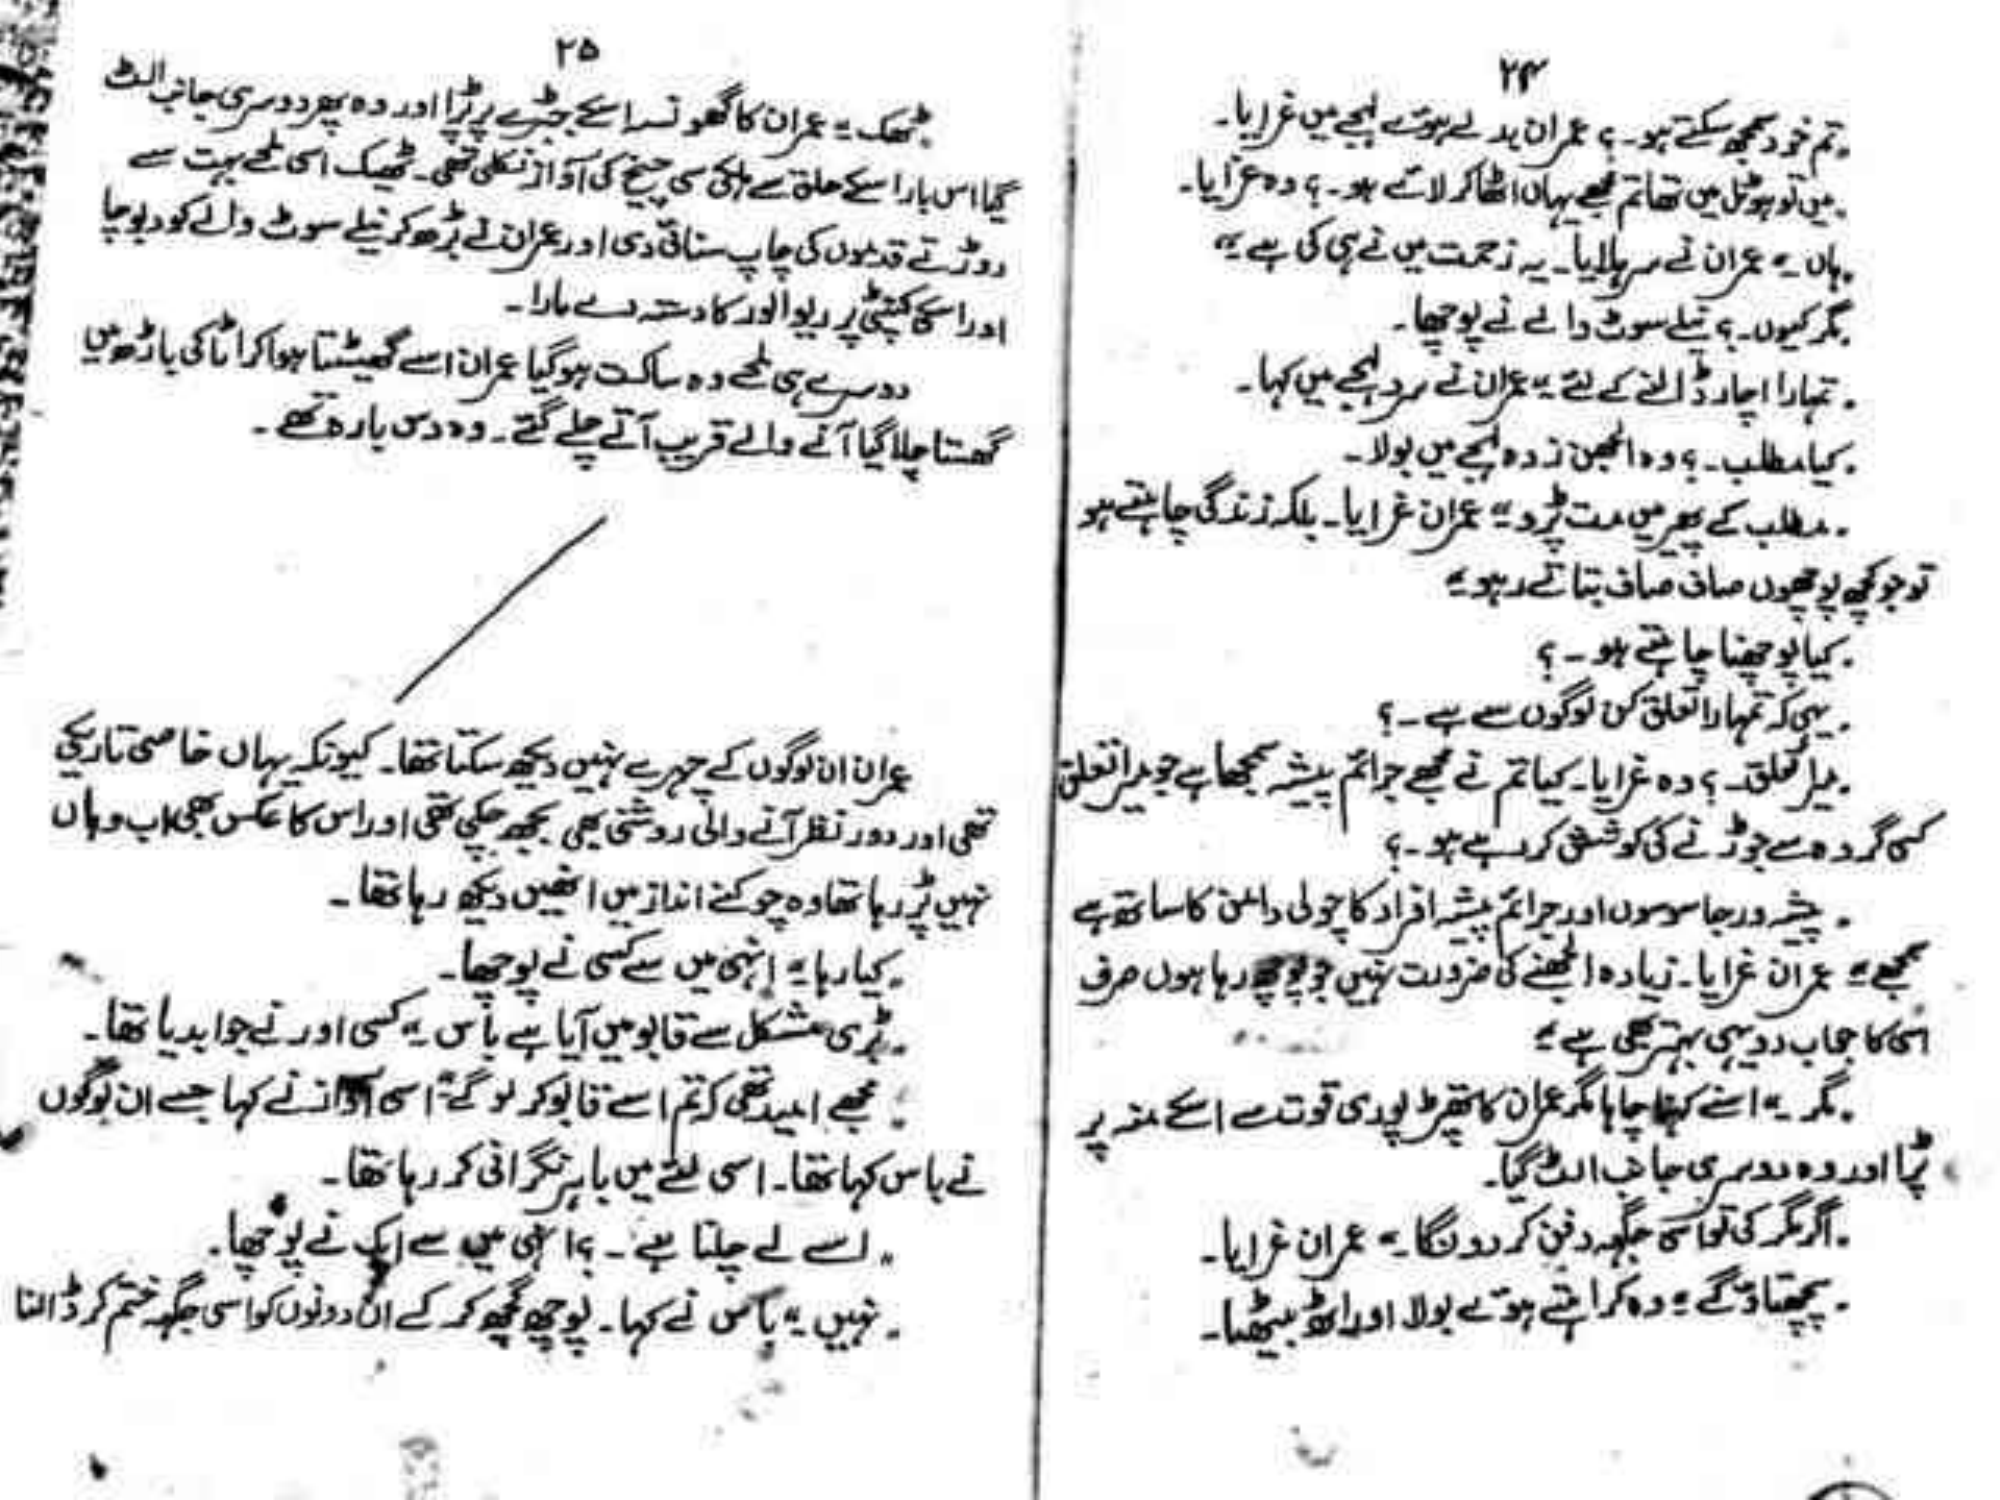 ۲۴
"تم خود سمجھ سکتے ہو۔ ؟ عمران بدلے ہوئے لہجے میں غرایا۔
"میں تو ہوٹل میں تھا تم مجھے یہاں اٹھا کر لائے ہو۔ ؟ وہ غرایا۔
"ہاں۔" عمران نے سر ہلایا۔ یہ زحمت میں نے ہی کی ہے"
"مگر کیوں۔ ؟ نیلے سوٹ والے نے پوچھا۔
"تمہارا اچار ڈالنے کے لئے" عمران نے سرد لہجے میں کہا۔
"کیا مطلب۔ ؟ وہ الجھن زدہ لہجے میں بولا۔
"مطلب کے پھیر میں مت پڑو" عمران غرایا۔ بلکہ زندگی چاہتے ہو
تو جو کچھ پوچھوں صاف صاف بتاتے رہو"
"کیا پوچھنا چاہتے ہو۔ ؟
"یہی کہ تمہارا تعلق کن لوگوں سے ہے۔ ؟
"میرا تعلق۔ ؟ وہ غرایا۔ کیا تم نے مجھے جرائم پیشہ سمجھا ہے جو میرا تعلق
کسی گروہ سے جوڑنے کی کوشش کر رہے ہو۔ ؟
"پیشہ ور جاسوسوں اور جرائم پیشہ افراد کا چولی دامن کا ساتھ ہے
سمجھے" عمران غرایا۔ زیادہ الجھنے کی ضرورت نہیں جو پوچھ رہا ہوں صرف
اسی کا جواب دو یہی بہتر بھی ہے"
"مگر۔" اسنے کہنا چاہا مگر عمران کا تھپڑ پوری قوت سے اسکے منہ پر
پڑا اور وہ دوسری جانب الٹ گیا۔
"اگر مگر کی تو اسی جگہہ دفن کر دونگا۔" عمران غرایا۔
"پچھتاؤگے" وہ کراہتے ہوئے بولا اور اٹھ بیٹھا۔
۲۵
"ٹھک" عمران کا گھونسہ اسکے جبڑے پر پڑا اور وہ پھر دوسری جانب الٹ
گیا اس بار اسکے حلق سے ہلکی سی چیخ کی آواز نکلی تھی۔ ٹھیک اسی لمحے بہت سے
دوڑتے قدموں کی چاپ سنائی دی اور عمران نے بڑھ کر نیلے سوٹ والے کو دبوچا
اور اسکی کنپٹی پر ریوالور کا دستہ دے مارا۔
دوسرے ہی لمحے وہ ساکت ہو گیا عمران اسے گھسیٹتا ہوا کراٹا کی باڑھ میں
گھستا چلا گیا آنے والے قریب آتے چلے گئے۔ وہ دس بارہ تھے۔
عمران ان لوگوں کے چہرے نہیں دیکھ سکتا تھا۔ کیونکہ یہاں خاصی تاریکی
تھی اور دور نظر آنے والی روشنی بھی بجھ چکی تھی اور اس کا عکس بھی اب وہاں
نہیں پڑ رہا تھا وہ چوکنے انداز میں انھیں دیکھ رہا تھا۔
"کیا رہا" انہی میں سے کسی نے پوچھا۔
"بڑی مشکل سے قابو میں آیا ہے باس" کسی اور نے جواب دیا تھا۔
"مجھے امید تھی کہ تم اسے قابو کر لو گے" اسی آواز نے کہا جسے ان لوگوں
نے باس کہا تھا۔ اسی لئے میں باہر نگرانی کر رہا تھا۔
"اسے لے چلنا ہے۔ ؟ انہی میں سے ایک نے پوچھا۔
"نہیں" باس نے کہا۔ پوچھ گچھ کر کے ان دونوں کو اسی جگہہ ختم کر ڈالنا